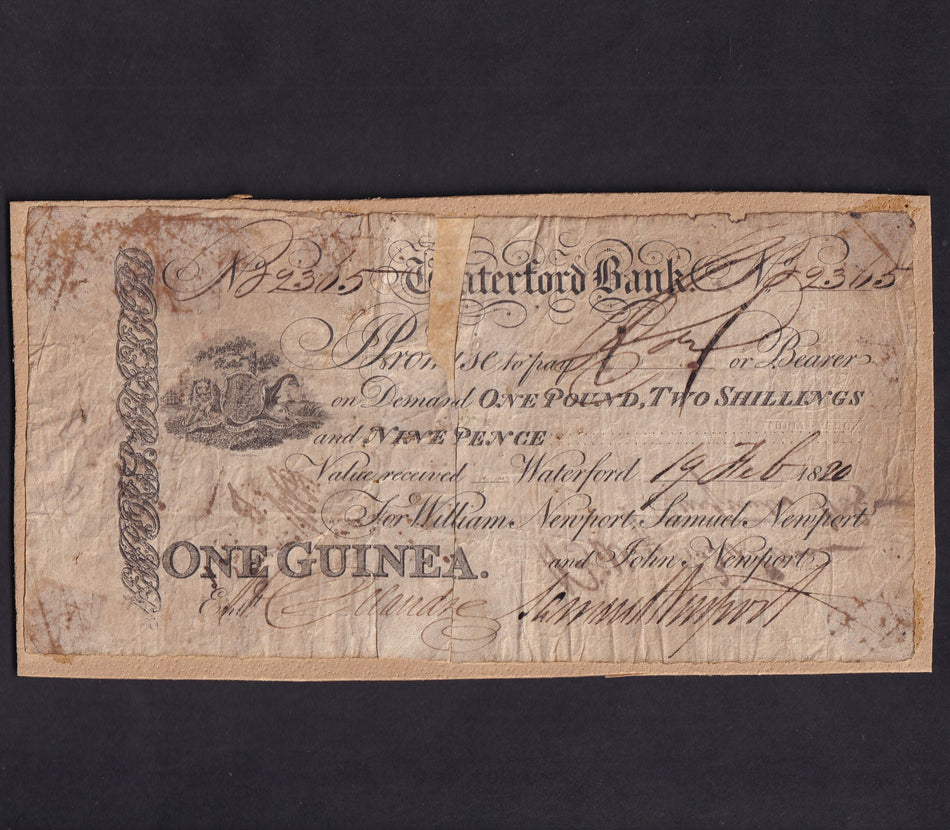 No 2305 Waterford Bank No 2305
I Promise to pay or Bearer
on Demand ONE POUND, TWO SHILLINGS
and NINE PENCE
Value received Waterford 19 Feb 1820
For William Newport, Samuel Newport
and John Newport
ONE GUINEA.
Entd Samuel Newport